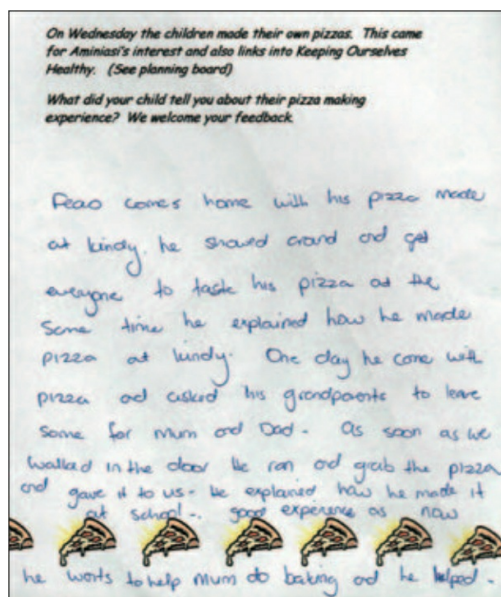 On Wednesday the children made their own pizzas. This came
for Aminiasi's interest and also links into Keeping Ourselves
Healthy. (See planning board)
What did your child tell you about their pizza making
experience? We welcome your feedback
Feao comes home with his pizza made
at kindy. he shared around and get
everyone to taste his pizza at the
same time he explained how he made
pizza at kindy. One day he come with
pizza and asked his grandparents to leave
some for Mum and Dad. As soon as we
walked in the door He ran and grab the pizza
and gave it to us. He explained how he made it
at school.. good experience as now
he wants to help Mum do baking and he helped.